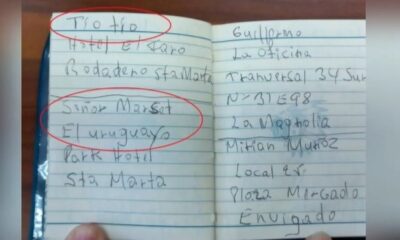 Tio tio
Hotel El Faro
Rodadero Sta Marta
Señor Marset
El uruguayo
Park Hotel
Sta Marta
Guillermo
La Oficina
Tranversal 34 Sur
N= 31E98
La Magnolia
Mirian Muñoz
Local
Plaza Mercado
Envigado